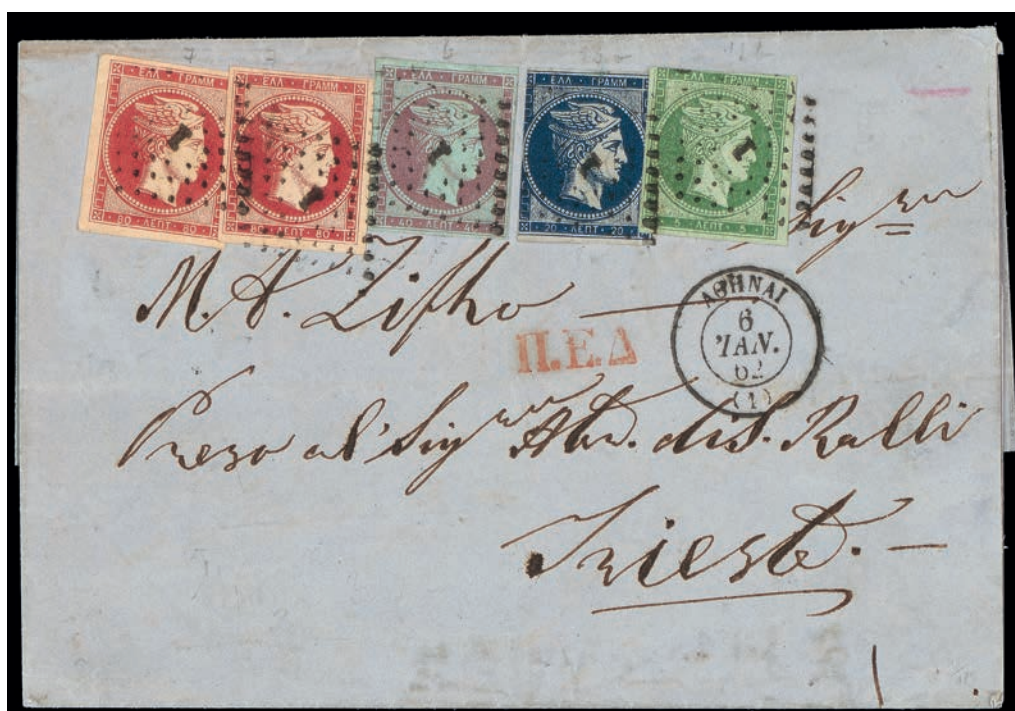 ΕΛΛ · ΓΡΑΜΜ
80 · ΛΕΠΤ · 80
ΕΛΛ · ΓΡΑΜΜ
80 · ΛΕΠΤ · 80
ΕΛΛ · ΓΡΑΜΜ
40 · ΛΕΠΤ · 40
ΕΛΛ · ΓΡΑΜΜ
20 · ΛΕΠΤ · 20
ΕΛΛ · ΓΡΑΜΜ
5 · ΛΕΠΤ · 5
1 1 1 1 1
M. A. Zifho
Π.Ε.Δ
ΑΘΗΝΑΙ
6
ΊΑΝ.
62
(1)
Ralli
Trieste. —